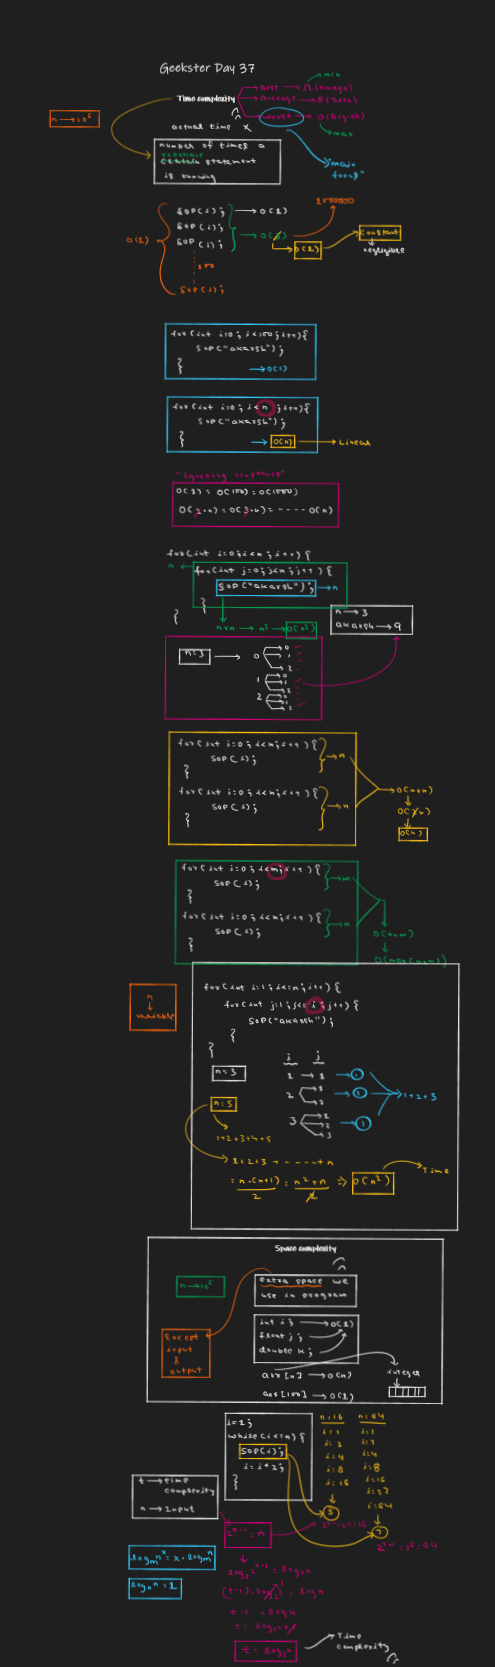 Geekster Day 37
best → Ω(Omega)
min
Time complexity
Average → θ(Theta)
worst → O(Big oh)
max
n → 10⁵
actual time x
number of times a
certain statement
is running
"main
focus"
SOP(i); → O(1)
SOP(i);
SOP(i);
100
SOP(i);
O(1)
O(1)
constant
negligible
for(int i=0; i<100; i++){
SOP("akarsh");
}
→ O(1)
for(int i=0; i<n; i++){
SOP("akarsh");
}
→ O(n) → Linear
"Ignoring constants"
O(1) = O(100) = O(1000)
O(2·n) = O(3·n) = ---- O(n)
for(int i=0; i<n; i++){
n
for(int j=0; j<n; j++){
SOP("akarsh"); → n
}
}
n×n → n² → O(n²)
n → 3
akarsh → 9
n=3 → 0
0
1
2
1
0
1
2
2
0
1
2
for(int i=0; i<n; i++){
SOP(i);
}
→ n
for(int i=0; i<n; i++){
SOP(i);
}
→ n
O(n+n)
O(2n)
O(n)
for(int i=0; i<m; i++){
SOP(i);
}
→ m
for(int i=0; i<n; i++){
SOP(i);
}
→ n
O(n+m)
O(max(n,m))
n
variable
for(int i=1; i<=n; i++){
for(int j=1; j<=i; j++){
SOP("akarsh");
}
}
n=3
i j
1 → 1 → 1
2
1
2
→ 2
3
1
2
3
→ 3
1+2+3
n=5
1+2+3+4+5
1+2+3+-----+n
= n·(n+1)/2 = n²+n/2 ⇒ O(n²)
Time
Space complexity
n → 10⁵
extra space we
use in program
Except
input
&
output
int i; → O(1)
float j;
double k;
arr[n] → O(n)
integer
arr[100] → O(1)
i=1;
while(i<=n){
SOP(i);
i=i*2;
}
n=16
i=1
i=2
i=4
i=8
i=16
5
n=64
i=1
i=2
i=4
i=8
i=16
i=32
i=64
7
t → time
complexity
n → Input
2ᵗ⁻¹ = n
log₂2ᵗ⁻¹ = log₂n
(t-1)·log₂2 = log₂n
t-1 = log₂n
t = log₂n
Time
complexity